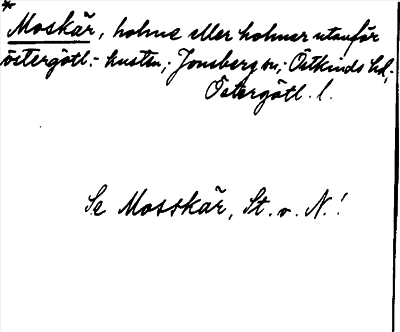 *
Moskär, holme eller holmar utanför
östergötl.-kusten; Jonsberg sn; Östkinds hd,
Östergötl. l.
Se Mosskär, St. o. N.!